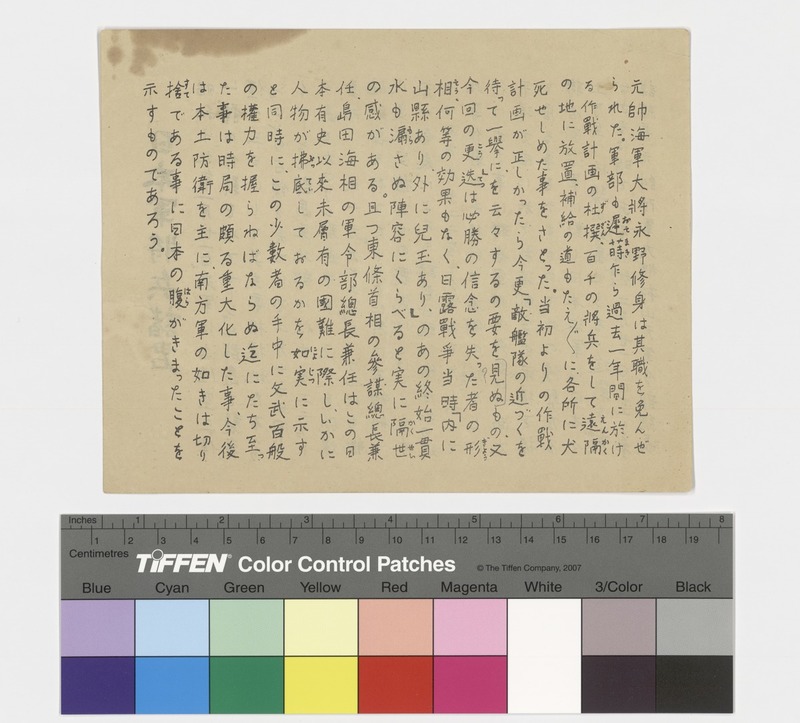 元帥海軍大將永野修身は其職を免んぜ
られた。軍部も遅蒔乍ら過去一年間に於け
る作戰計画の杜撰、百千の將兵をして遠隔
の地に放置、補給の道もたえ〲に、各所に犬
死せしめた事をさとった。当初よりの作戰
計画が正しかったら今更「敵艦隊の近づくを
待って一擧に」を云々するの要を見ぬもの。又
今回の更迭は必勝の信念を失った者の形
相、何等の効果もなく、日露戰爭当時「内に
山縣あり外に兒玉あり」のあの終始一貫
水も漏さぬ陣容にくらべると実に隔世
の感がある。且つ東條首相の參謀總長兼
任、島田海相の軍令部總長兼任はこの日
本有史以來未曾有の國難に際し、いかに
人物が拂底しておるかを如実に示す
と同時に、この少数者の手中に文武百般
の權力を握らねばならぬ迄にたち至っ
た事は時局の頗る重大化した事、今後
は本土防衛を主に、南方軍の如きは切り
捨てである事に日本の腹がきまったことを
示すものであろう。
おそまき
ずさん
えんかく
こうてつ
うしな
ぎょう
そう
かくせい
ふってい
にょじつ
すて
はら
Inches 1 2 3 4 5 6 7 8
1 2 3 4 5 6 7 8 9 10 11 12 13 14 15 16 17 18 19
Centimetres
TIFFEN® Color Control Patches © The Tiffen Company, 2007
Blue Cyan Green Yellow Red Magenta White 3/Color Black